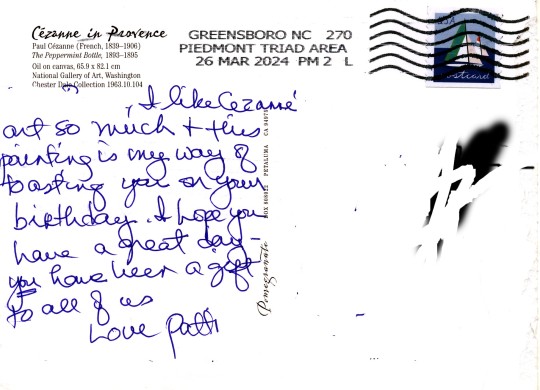 Cézanne in Provence
Paul Cézanne (French, 1839–1906)
The Peppermint Bottle, 1893–1895
Oil on canvas, 65.9 x 82.1 cm
National Gallery of Art, Washington
Chester Dale Collection 1963.10.104
GREENSBORO NC 270
PIEDMONT TRIAD AREA
26 MAR 2024 PM 2 L
USA
postcard
I like Cezanne
art so much + this
painting is my way of
toasting you on your
birthday. I hope you
have a great day –
you have been a gift
to all of us
Love Patti
Pomegranate
PETALUMA CA